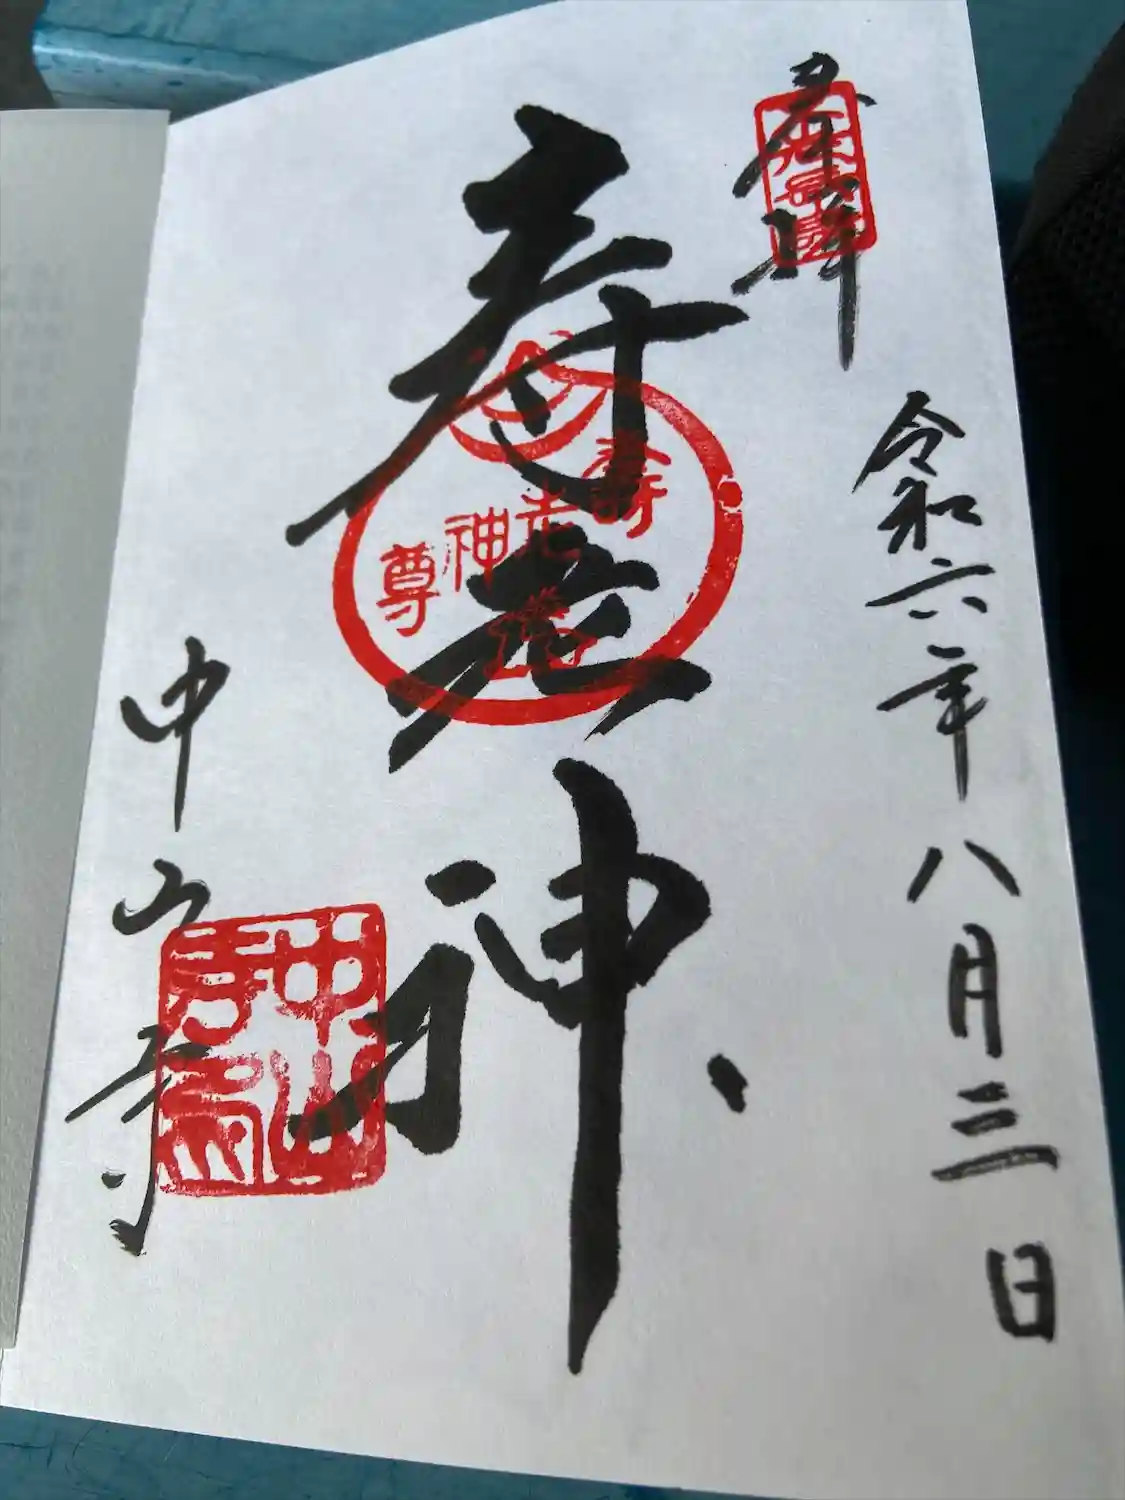 奉拝
令和六年八月三日
寿老神
寿
老
神
尊
中山寺
中山